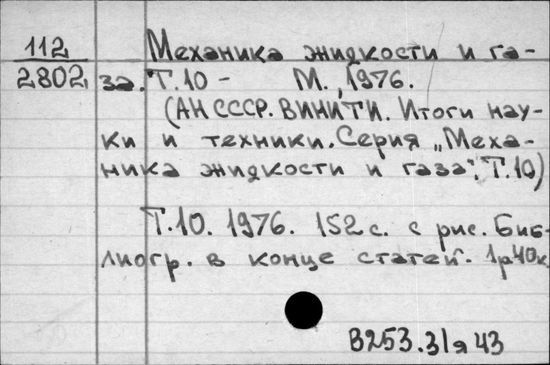 112
2802
Механика жидкости и га-
за. Т.10 - М., 1976.
(АН СССР. ВИНИТИ. Итоги нау-
ки и техники. Серия „Меха-
ника жидкости и газа". Т.10)
Т.10. 1976. 152 с. с рис. Биб-
лиогр. в конце статей. 1р40к
В253.31я43